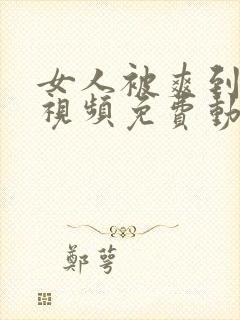 女人被爽到
視頻免費動
鄭萼